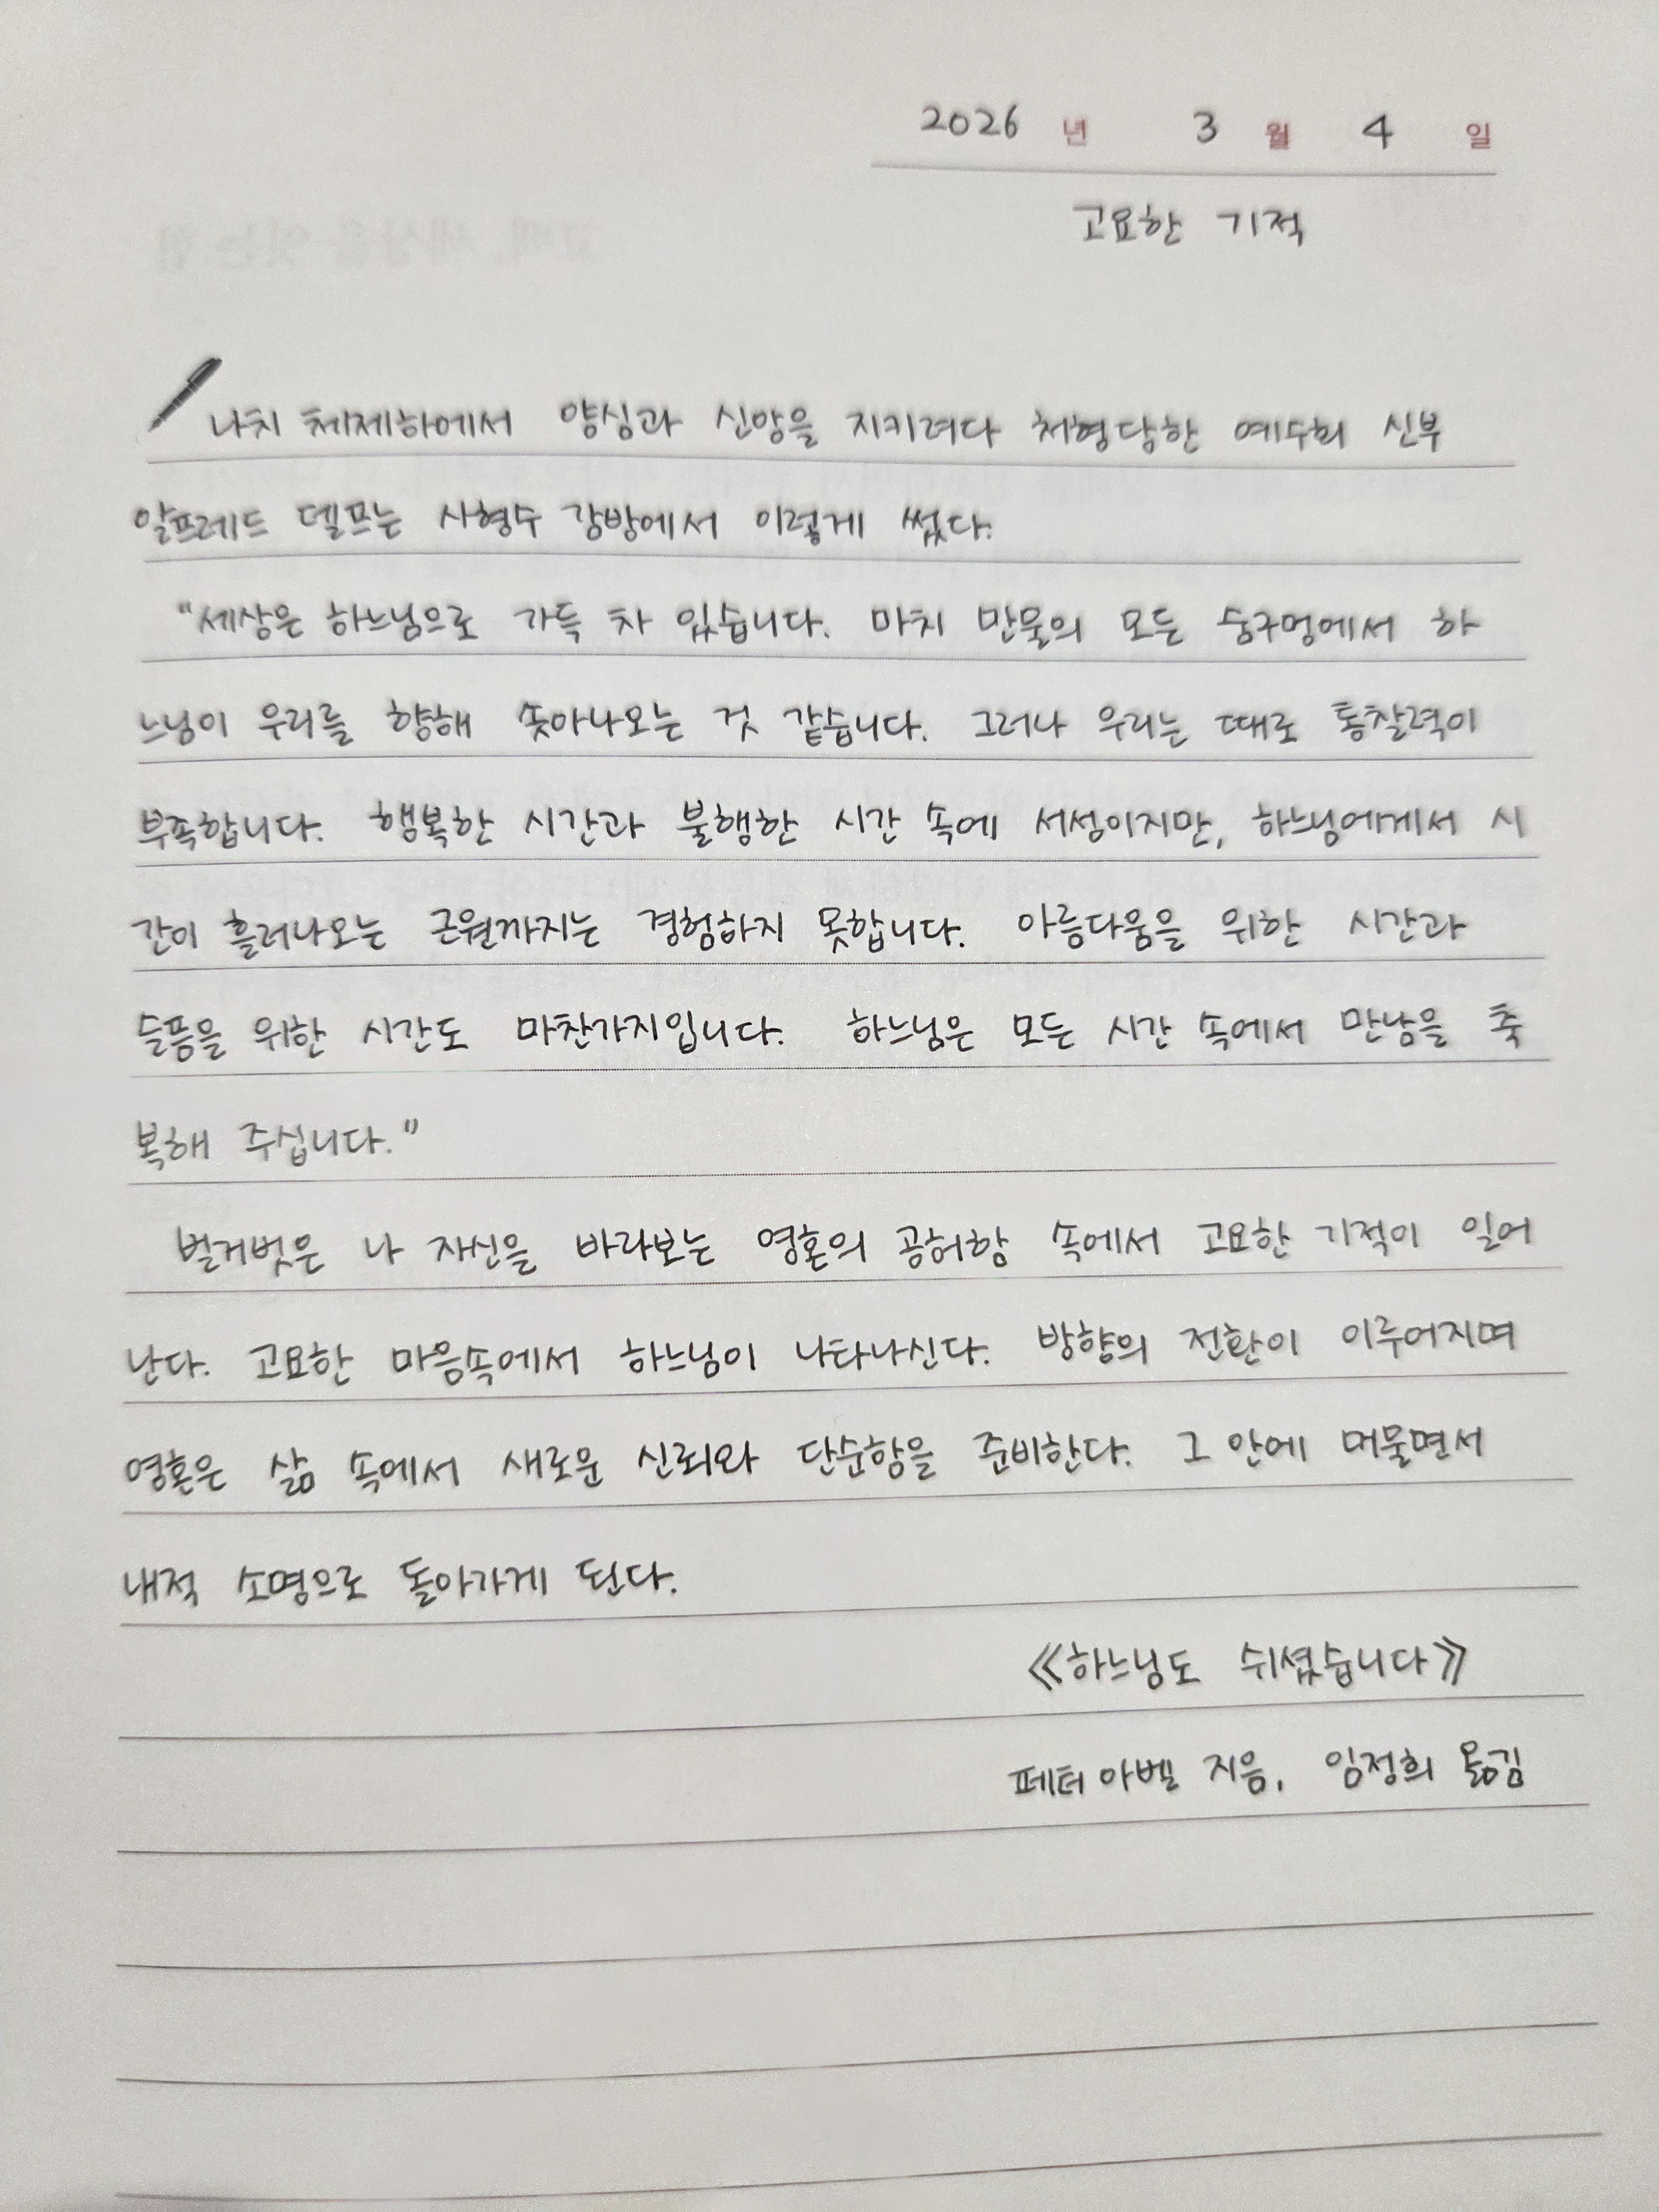 2026 년 3 월 4 일
고요한 기적
나치 체제하에서 양심과 신앙을 지키려다 처형당한 예수회 신부
알프레드 델프는 사형수 감방에서 이렇게 썼다.
"세상은 하느님으로 가득 차 있습니다. 마치 만물의 모든 숨구멍에서 하
느님이 우리를 향해 솟아나오는 것 같습니다. 그러나 우리는 때로 통찰력이
부족합니다. 행복한 시간과 불행한 시간 속에 서성이지만, 하느님에게서 시
간이 흘러나오는 근원까지는 경험하지 못합니다. 아름다움을 위한 시간과
슬픔을 위한 시간도 마찬가지입니다. 하느님은 모든 시간 속에서 만남을 축
복해 주십니다."
벌거벗은 나 자신을 바라보는 영혼의 공허함 속에서 고요한 기적이 일어
난다. 고요한 마음속에서 하느님이 나타나신다. 방향의 전환이 이루어지며
영혼은 삶 속에서 새로운 신뢰와 단순함을 준비한다. 그 안에 머물면서
내적 소명으로 돌아가게 된다.
《하느님도 쉬셨습니다》
페터 아벨 지음, 임정희 옮김